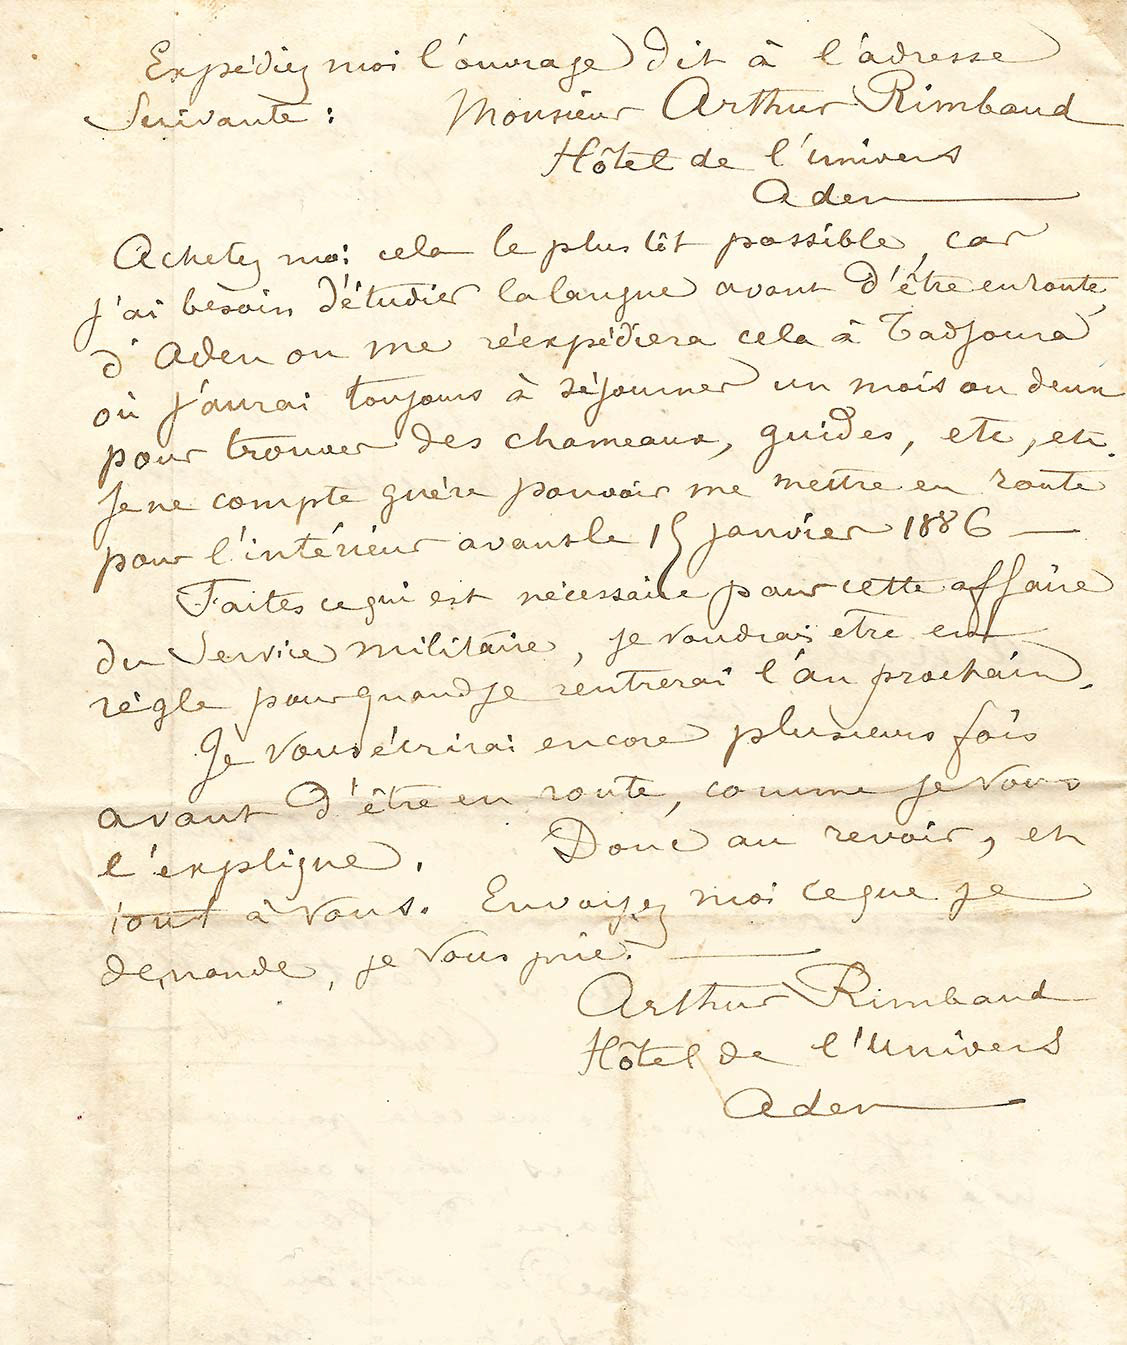 Expédiez moi l'ouvrage dit à l'adresse
Suivante : Monsieur Arthur Rimbaud
Hôtel de l'Univers
Aden
Achetez moi cela le plus tôt possible, car
j'ai besoin d'étudier la langue avant d'être en route,
d'Aden on me réexpédiera cela à Tadjoura
où j'aurai toujours à séjourner un mois ou deux
pour trouver des chameaux, guides, etc, etc.
Je ne compte guère pouvoir me mettre en route
pour l'intérieur avant le 15 janvier 1886 —
Faites ce qui est nécessaire pour cette affaire
du Service militaire, je voudrais être en
règle pour quand je rentrerai l'an prochain.
Je vous écrirai encore plusieurs fois
avant d'être en route, comme je vous
l'explique. Donc au revoir, et
tout à vous. Envoyez moi ce que je
demande, je vous prie. —
Arthur Rimbaud
Hôtel de l'Univers
Aden